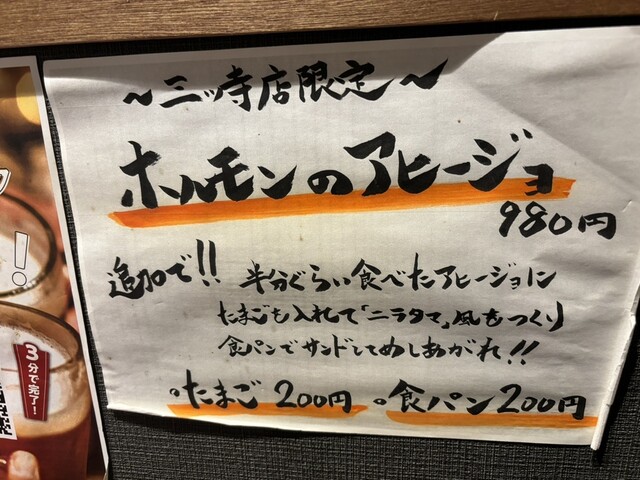 ～三ッ寺店限定～
ホルモンのアヒージョ
980円
追加で!! 半分ぐらい食べたアヒージョに
たまごも入れて「ニラタマ」風をつくり
食パンでサンドしてめしあがれ!!
。たまご200円 。食パン200円
!
3分で完了!